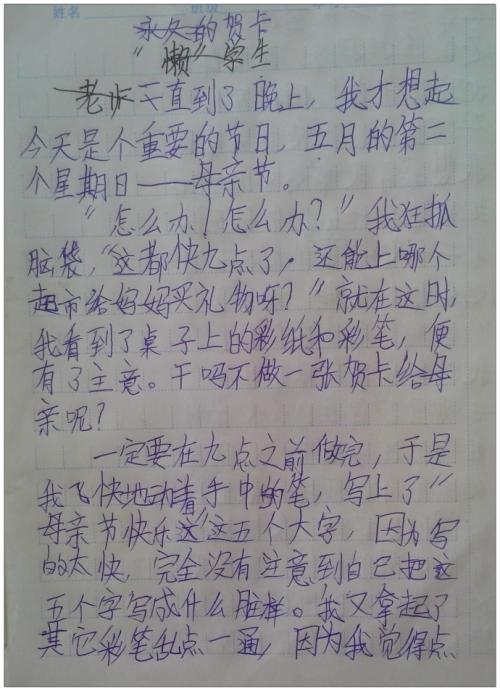 姓名 班级
永久的贺卡
“懒”学生
老师一直到了晚上，我才想起
今天是个重要的节日，五月的第二
个星期日——母亲节。
“怎么办！怎么办？”我狂抓
脑袋，“这都快九点了，还能上哪个
超市给妈妈买礼物呀？”就在这时，
我看到了桌子上的彩纸和彩笔，便
有了主意。干吗不做一张贺卡给母
亲呢？
一定要在九点之前做完，于是
我飞快地动着手中的笔，写上了“
母亲节快乐这”这五个大字，因为写
的太快，完全没有注意到自己把这
五个字写成什么脏样。我又拿起了
其它彩笔乱点一通，因为我觉得点